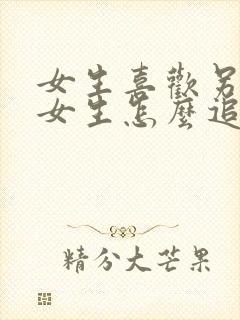 女生喜歡另
女生怎麼追
精分大芒果